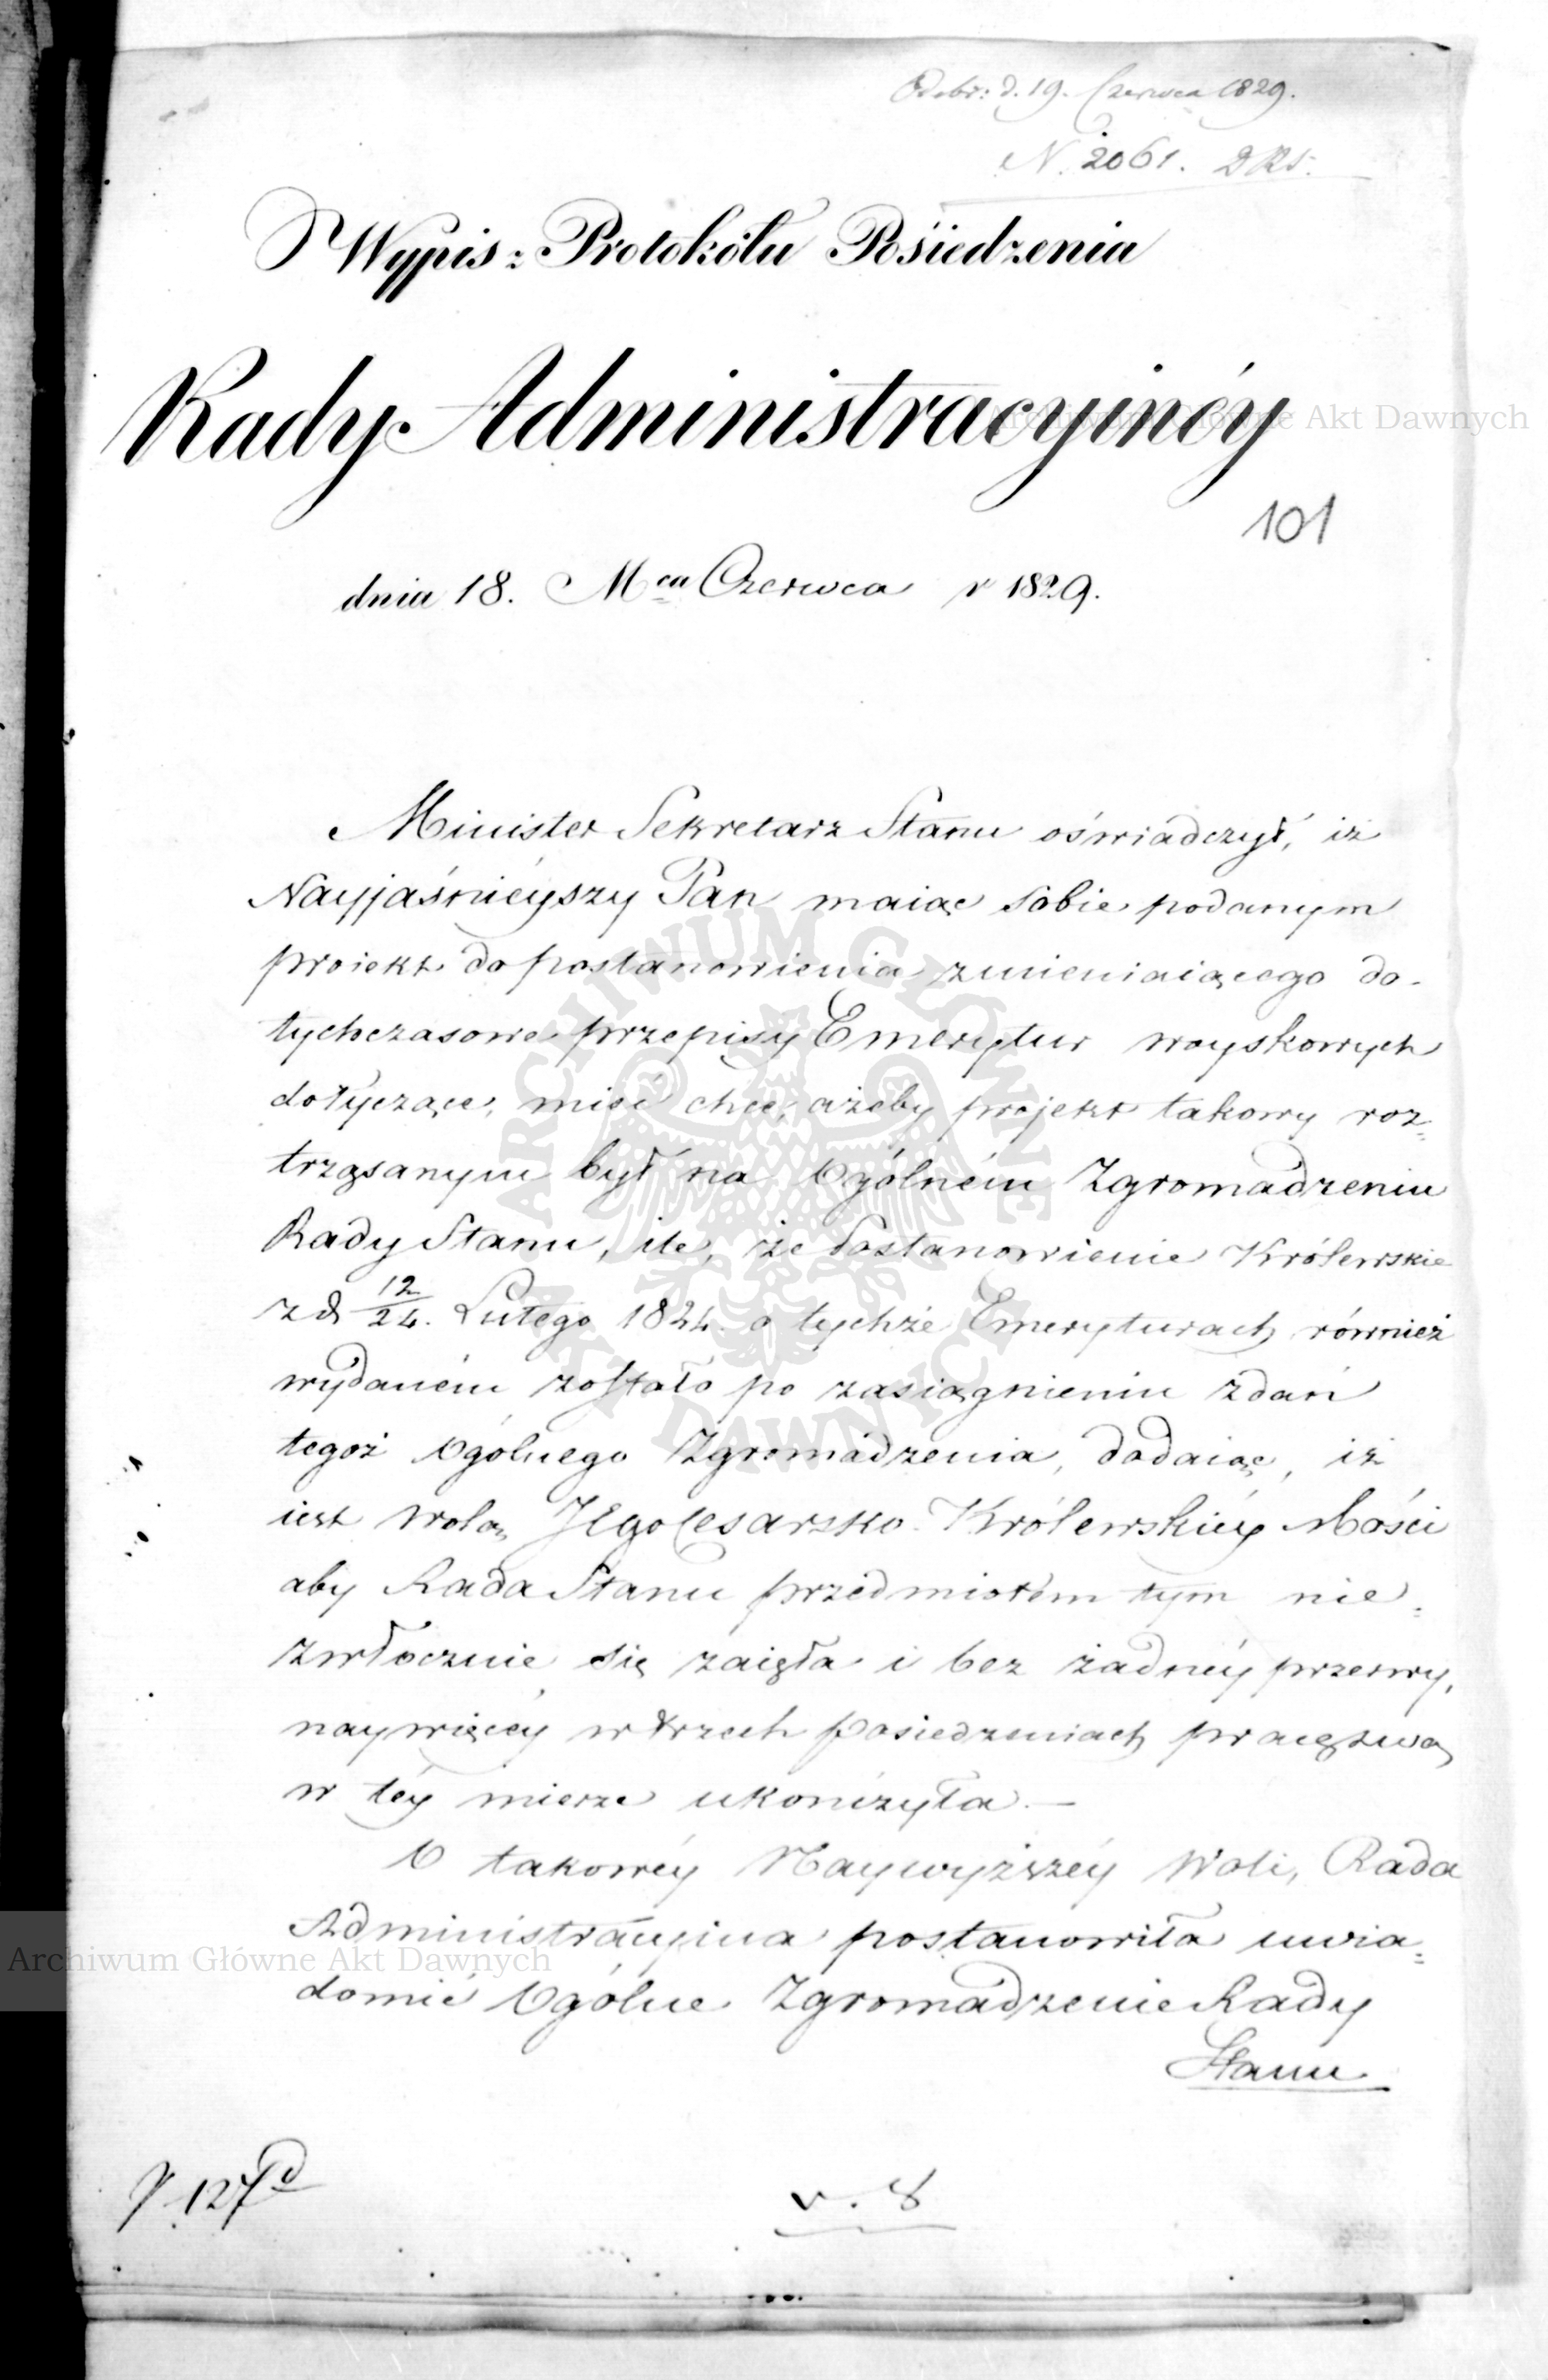 Odebr: d. 19. Czerwca 1829.
N. 2061. DRS.
Wypis z Protokółu Posiedzenia
Rady Administracyinéy
101
dnia 18. Mca Czerwca r 1829.
Minister Sekretarz Stanu oświadczył, iż
Nayjaśnieyszy Pan maiąc sobie podanym
proiekt do postanowienia zmieniaiącego do-
tychczasowe przepisy Emerytur woyskowych
dotyczące, mieć chce, ażeby projekt takowy roz=
trząsanym był na Ogólném Zgromadzeniu
Rady Stanu, ile, że Postanowienie Królewskie
z d 12/24. Lutego 1824. o tychże Emeryturach również
wydaném zostało po zasiągnieniu zdań
tegoż Ogólnego Zgromadzenia, dodaiąc, iż
iest wolą JEgo Cesarsko-Królewskiéy Mości
aby Rada Stanu przedmiotem tym nie=
zwłocznie się zaięła i bez żadnéy przerwy,
naywięcéy w trzech posiedzeniach pracę swą
w téy mierze ukończyła. —
O takowéy Naywyższéy Woli, Rada
Administracyina postanowiła uwia=
domić Ogólne Zgromadzenie Rady
Stanu
127
v. 8
Archiwum Główne Akt Dawnych
Archiwum Główne Akt Dawnych
ARCHIWUM GŁÓWNE
AKT DAWNYCH